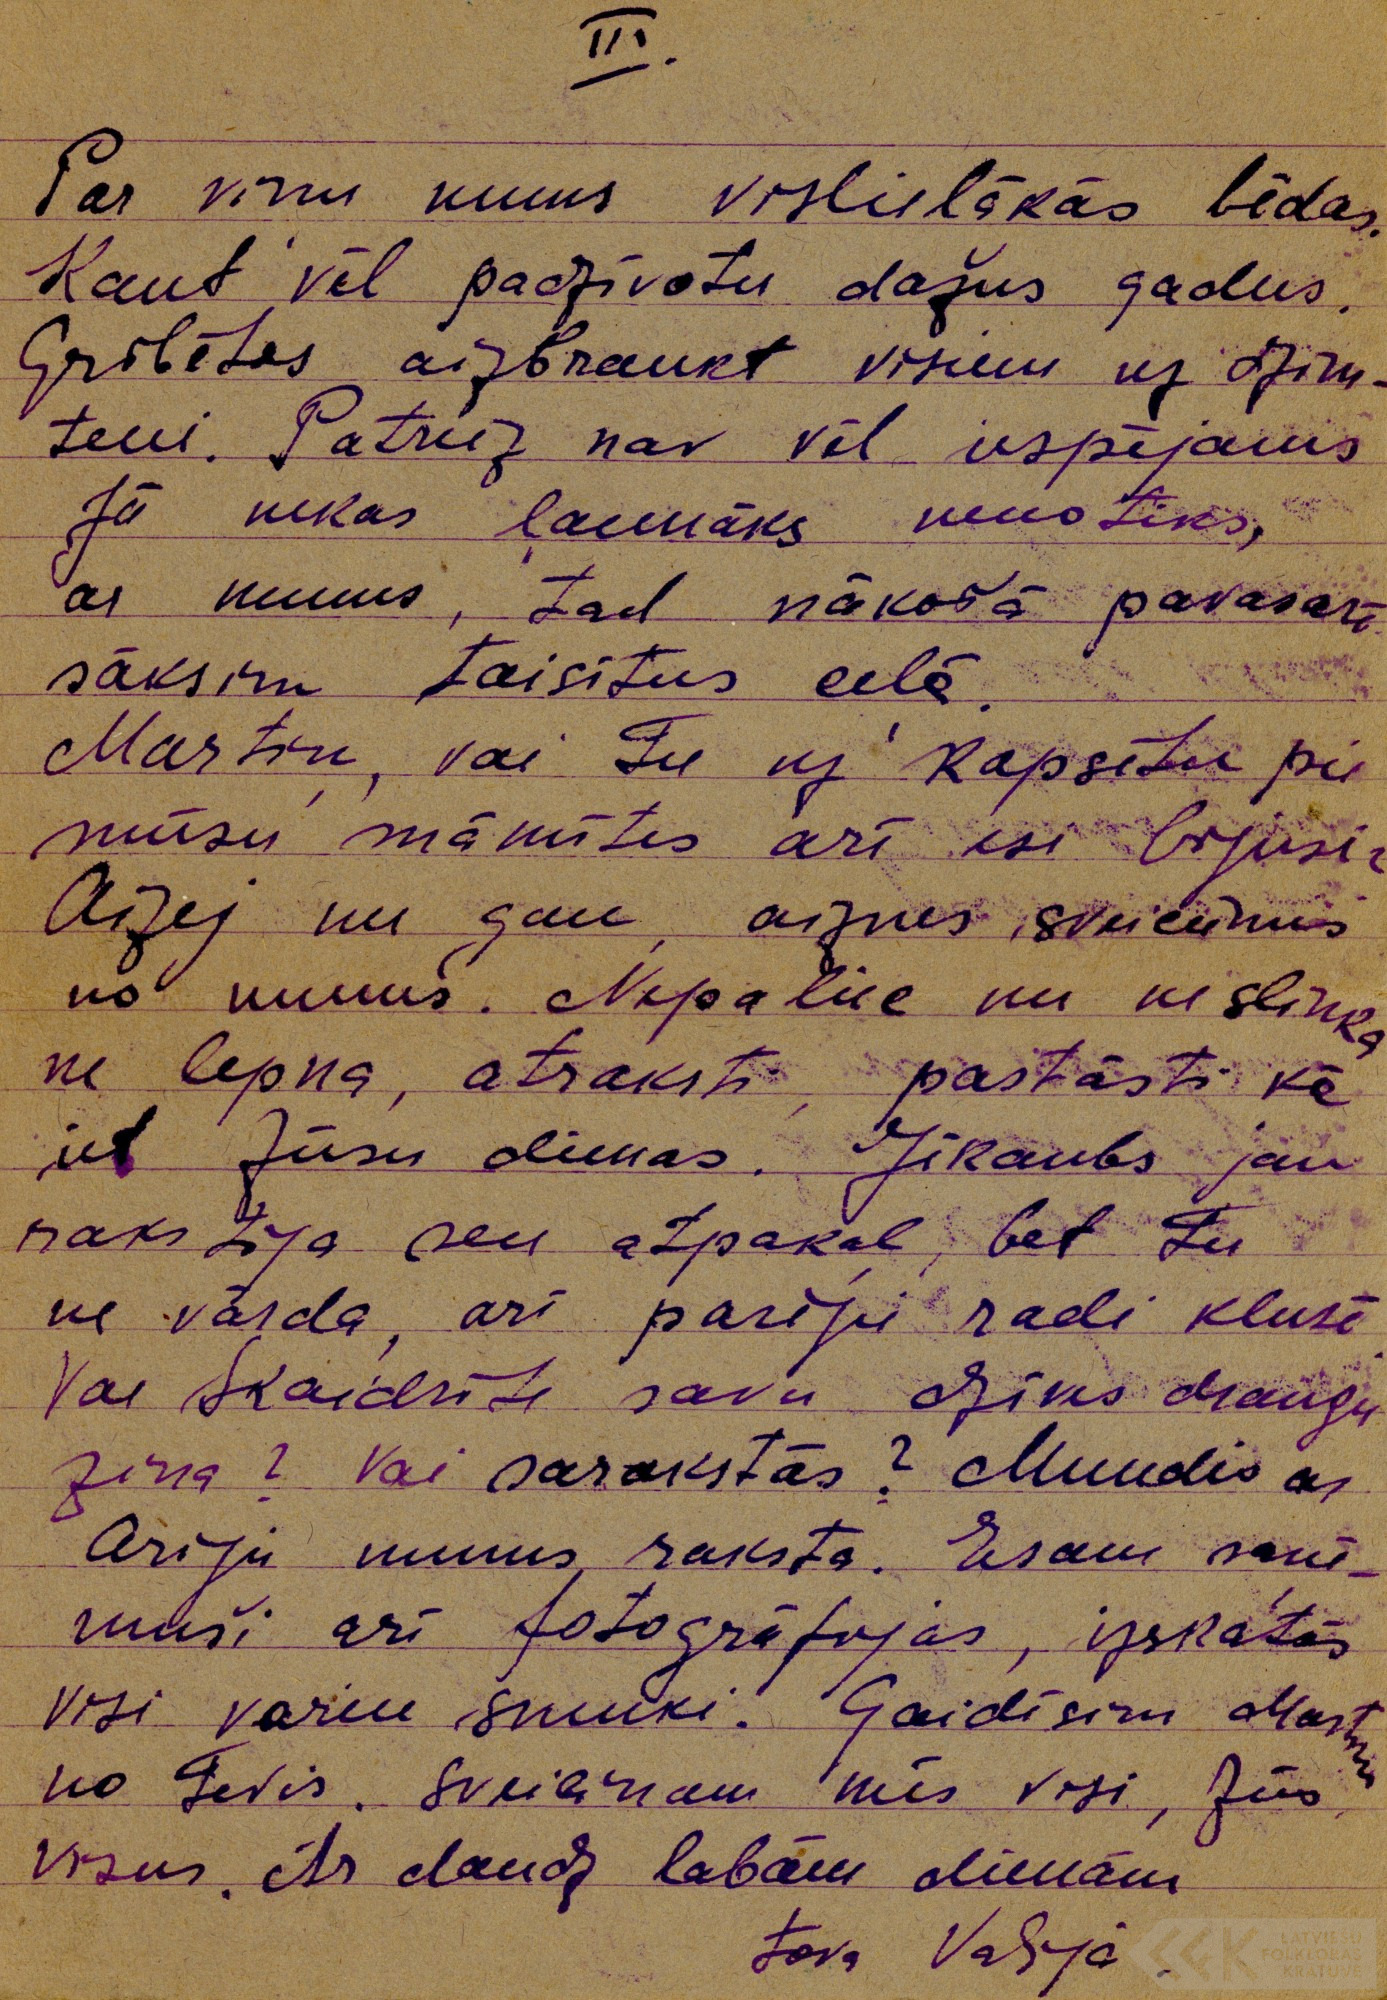 III.
Par viņu mums vislielākās bēdas.
Kaut vēl padzīvotu dažus gadus.
Gribētos aizbraukt visiem uz dzim-
teni. Patreiz nav vēl iespējams
Jā nekas ļaunāks nenotiks,
ar mums, tad nākošā pavasarī
sāksim taisītus ceļā.
Martiņ, vai Tu uz kapsētu pie
mūsu māmītes arī esi bijusi?
Aizej nu gan, aiznes sveicienus
no mums. Nepaliec nu ne slinka
ne lepna, atraksti, pastāsti kā
iet Jūsu dienas. Jēkaubs jau
rakstīja sen atpakaļ, bet Tu
ne vārda, arī parējie radi klusē.
Vai Skaidrīte savu dzīves draugu
zina? Vai sarakstās? Mundis ar
Ariju mums raksta. Esam saņē-
muši arī fotogrāfijas, izskatās
visi varen smuki. Gaidīsim Martiņ
no Tevis. Sveicinam mēs visi, Jūs
visus. Ar daudz labām dienām
tova Vaļija.
LATVIEŠU
FOLKLORAS
KRĀTUVE